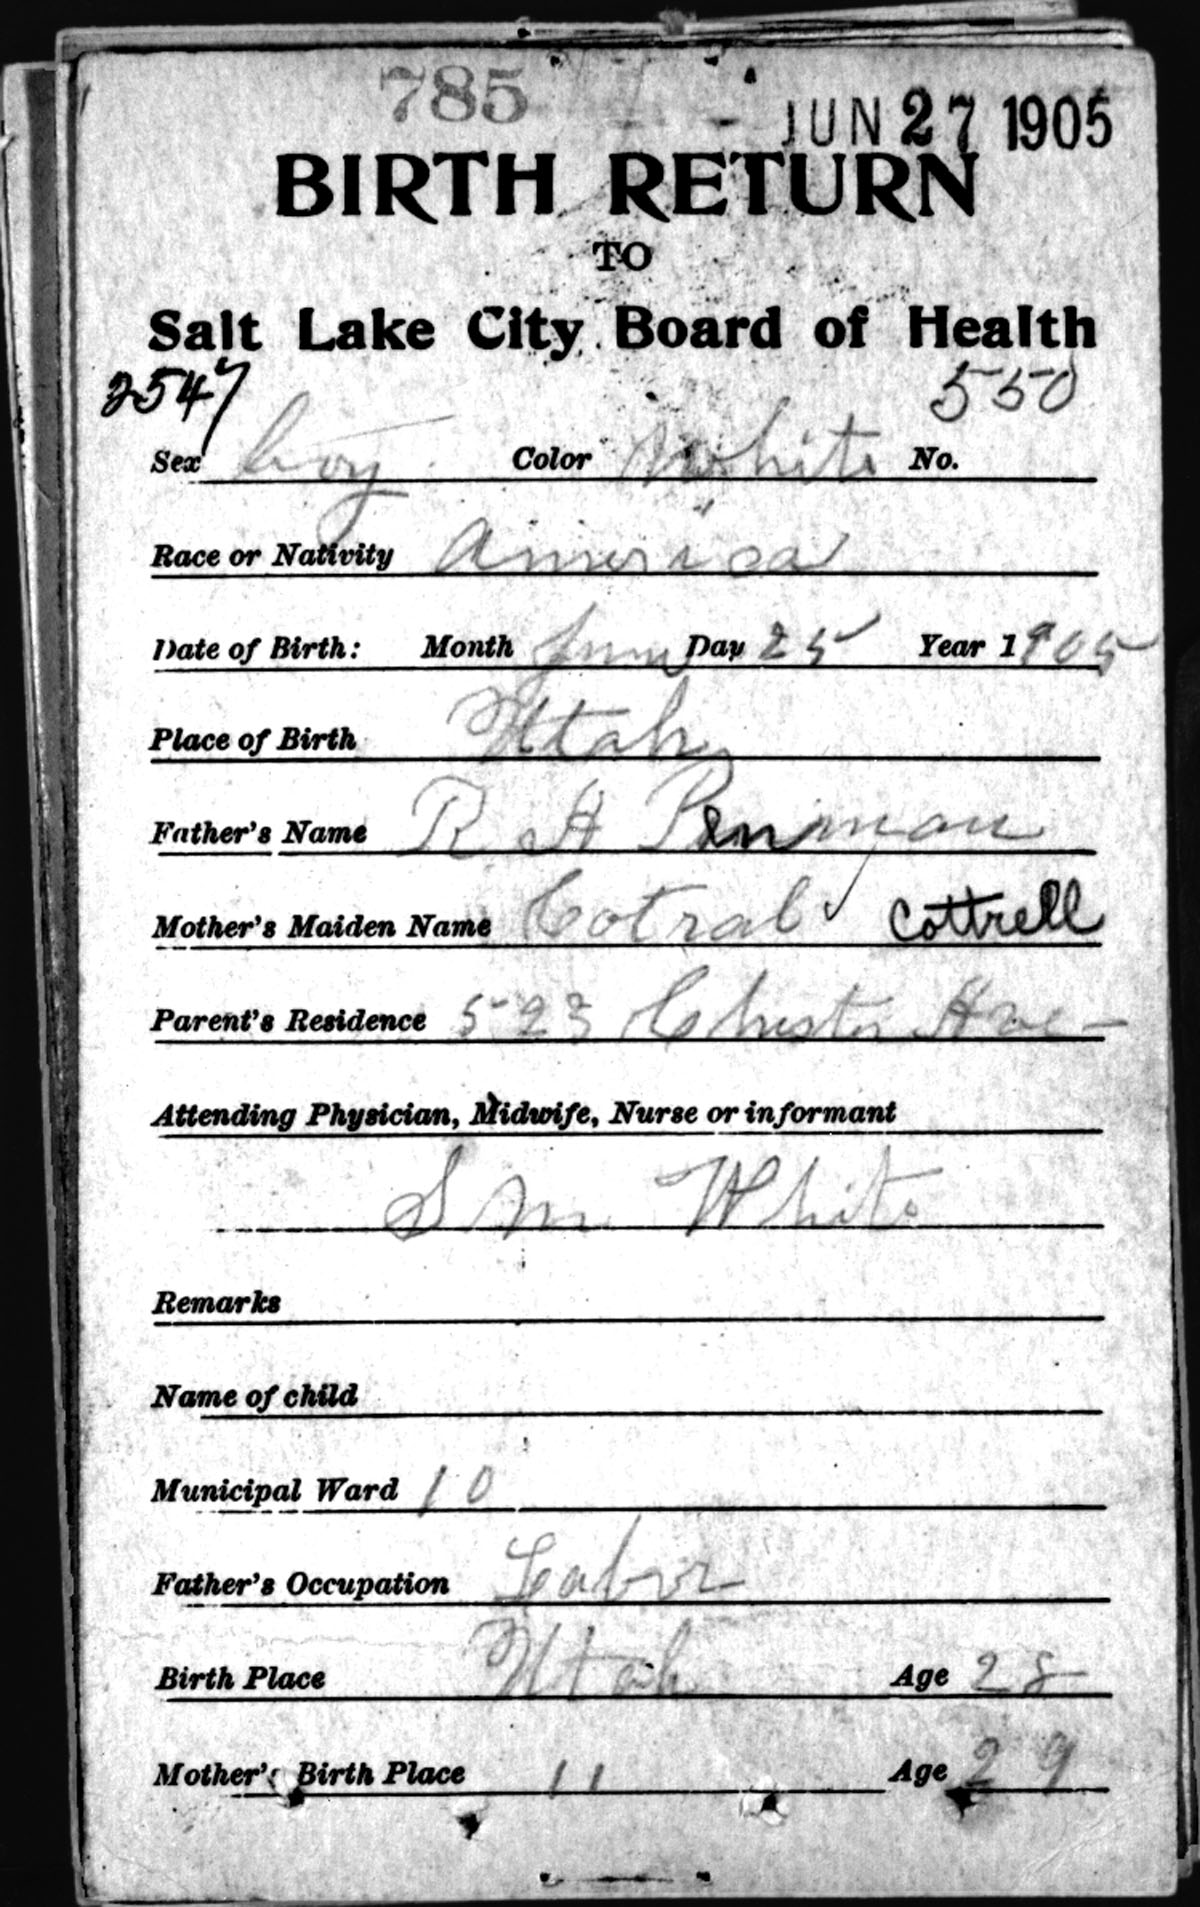 785
JUN 27 1905
BIRTH RETURN
TO
Salt Lake City Board of Health
2547 550
Sex boy Color White No.
Race or Nativity America
Date of Birth: Month June Day 25 Year 1905
Place of Birth Utah
Father's Name R H Penman
Mother's Maiden Name Cotral Cottrell
Parent's Residence 523 Chester Ave
Attending Physician, Midwife, Nurse or informant
S M White
Remarks
Name of child
Municipal Ward 10
Father's Occupation Labor
Birth Place Utah Age 28
Mother's Birth Place " Age 29